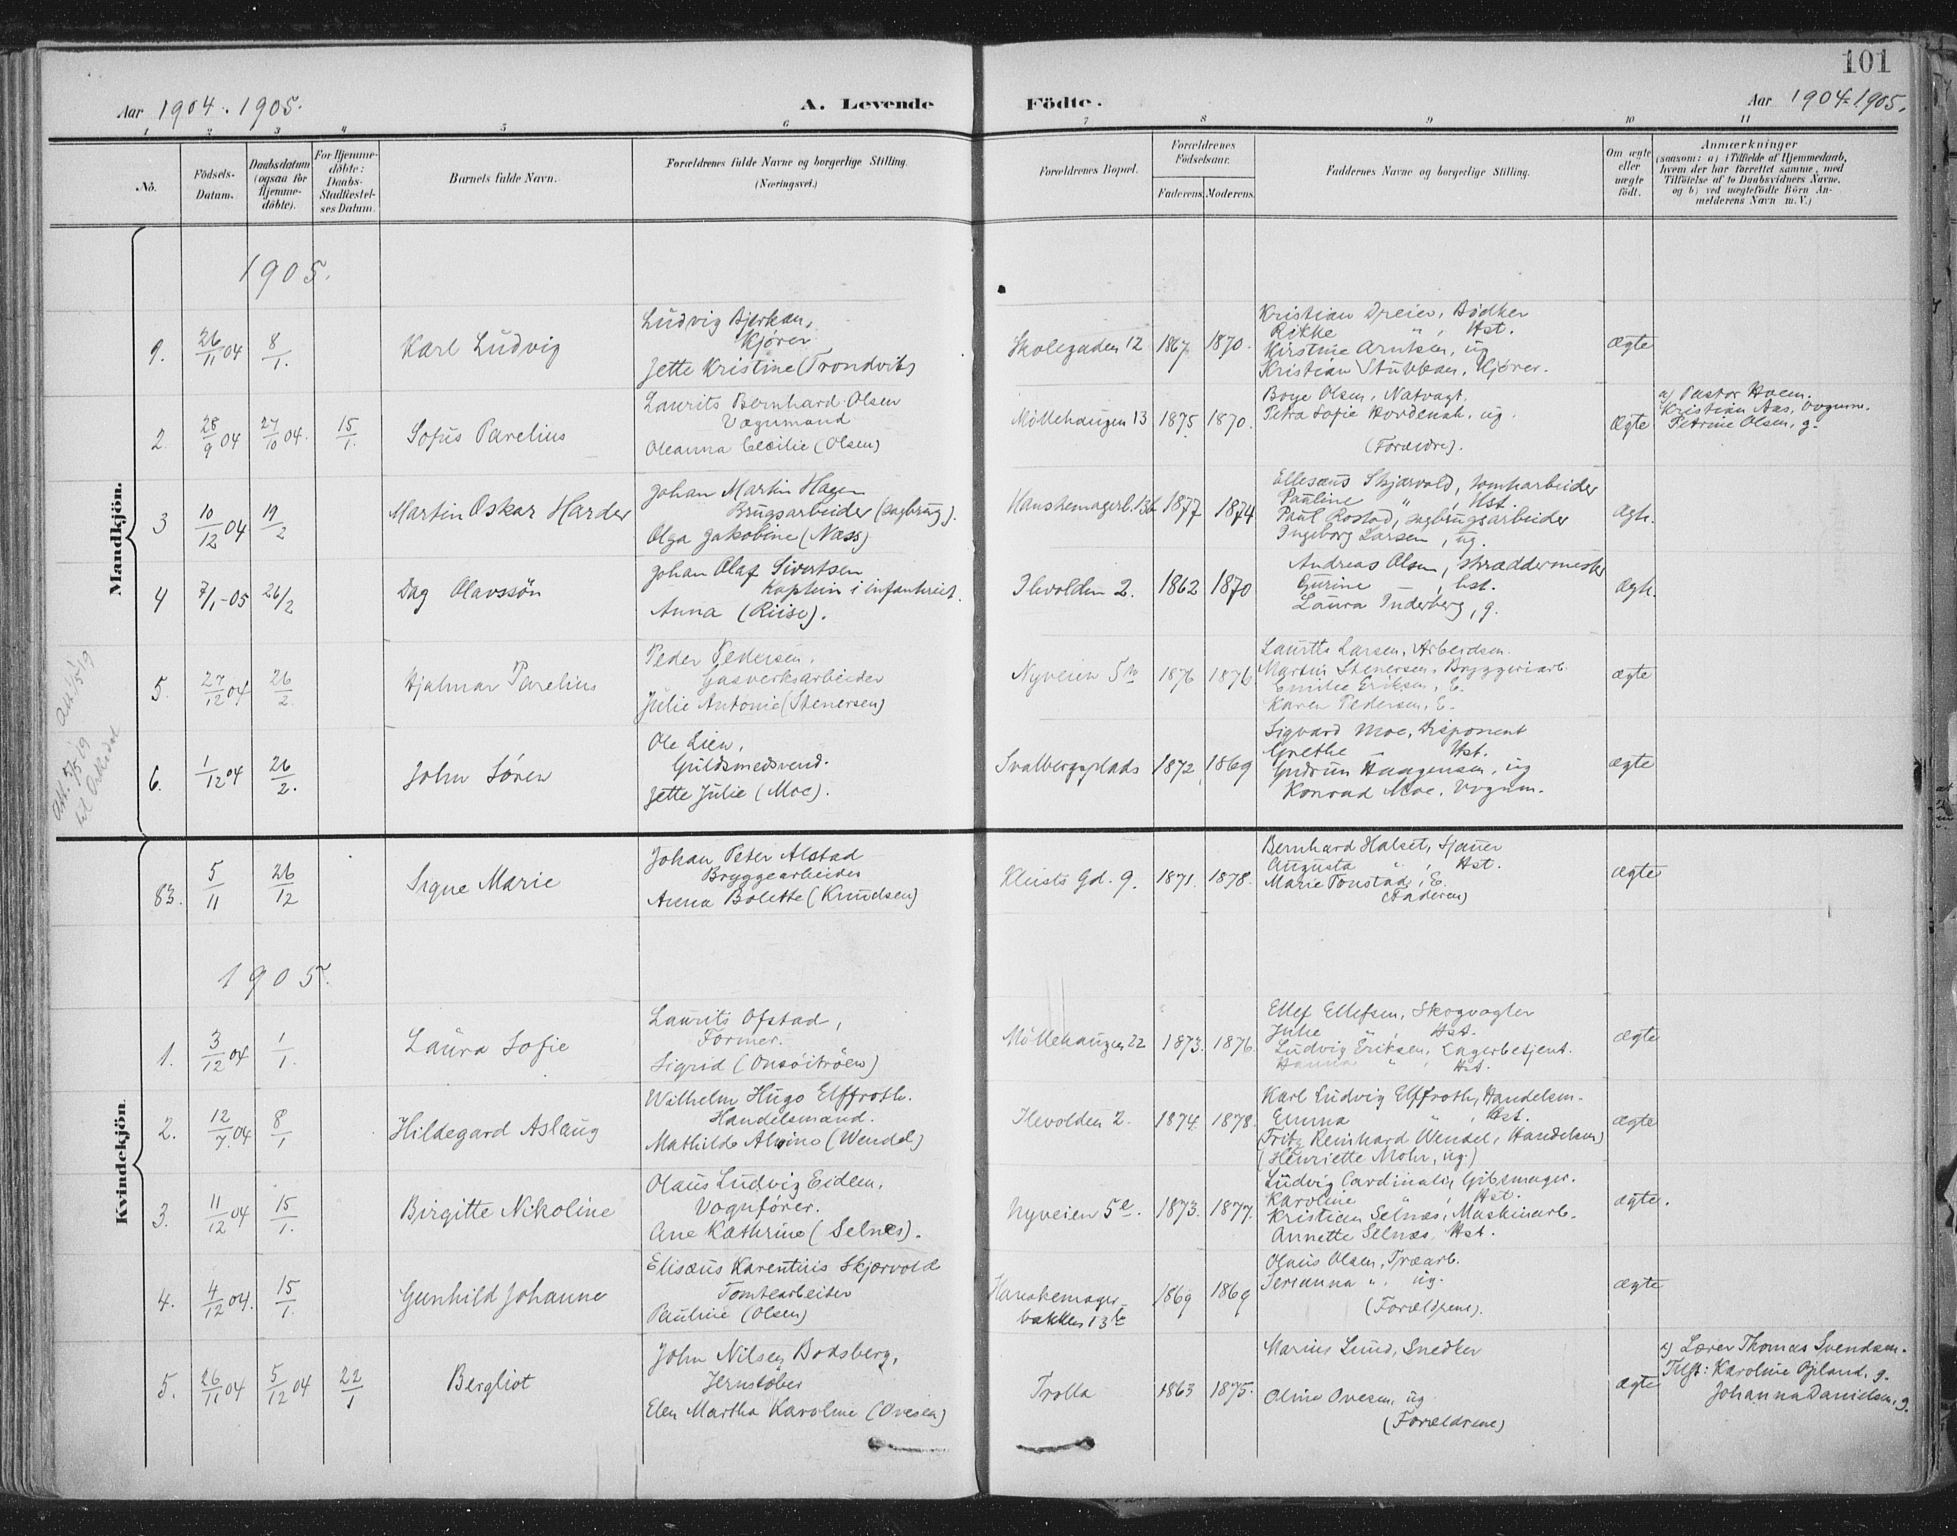 101
Aar 1904. 1905.
A. Levende Födte.
Aar 1904-1905.
1 2 3 4 5 6 7 8 9 10 11
No.
Födsels-Datum.
Daabsdatum (ogsaa for Hjemme-döbte).
For Hjemme-döbte: Daabs-Stadfæstel-ses Datum.
Barnets fulde Navn.
Forældrenes fulde Navne og borgerlige Stilling.
(Næringsvei.)
Forældrenes Bopæl.
Forældrenes Födselsaar.
Faderens. Moderens.
Faddernes Navne og borgerlige Stilling.
Om ægte eller uægte födt.
Anmærkninger
(saasom: a) i Tilfælde af Hjemmedaab,
hvem der har forrettet samme, med
Tilföielse af to Daabsvidners Navne,
og b) ved uægtefödte Börn An-
melderens Navn m. V.)
Mandkjön.
1905.
1. 26/11 04 8/1. Karl Ludvig
Ludvig Bjerkan,
Kjører
Jette Kristine (Trondvik)
Skolegaden 12 1867. 1870.
Kristian Dreier, Bødker
Rikke " , Hst.
Kirstine Arntsen, ug
Kristian Stubban, Kjører.
ægte
2. 28/9 04 27/10 04. 15/1. Sofus Parelius
Laurits Bernhard Olsen
Vognmand
Oleanna Cecilie (Olsen)
Møllehaugen 13 1875. 1870.
Boye Olsen, Natvagt.
Petra Sofie, ug.
(Forældre).
Ægte
a) Pastor Hoem.
Kristian Aas, Vognm.
Petrine Olsen, g.
3 10/12 04 19/2 Martin Oskar Harder
Johan Martin Hagen
Brugsarbeider (sagbrug).
Olga Jakobine (Næss)
Hanskemagerb. 13b 1877 1874
Ellesæus Skjærvold, tomtarbeider
Pauline " , Hst.
Paul Rostad, sagbrugsarbeider
Ingeborg Larsen, ug.
ægt.
4 7/1-05 26/2 Dag Olavssön
Johan Olaf Sivertsen
Kaptein i infanteriet.
Anna (Riise).
Ilevolden 2. 1862 1870
Andreas Olsen, skræddermester
Gurine — , hst.
Laura Inderberg, g.
Ægt.
5. 27/12 04 26/2. Hjalmar Parelius
Peder Pedersen.
Gasverksarbeider
Julie Antonie (Stenersen)
Nyveien 5 1876 1876
Laurits Larsen, Arbeidsm.
Martin Stenersen, Bryggeriarb.
Emilie Eriksen, E.
Karen Pedersen, E.
ægte
6. 1/12 04 26/2. John Sören
Ole Lien,
Guldsmedsvend.
Jette Julie (Moe).
Svalbergsplads 1872 1869
Sigvard Moe, Disponent
Grethe Hst.
Gudrun Haagensen, ug
Konrad Moe, Vognm.
ægte
Kvindekjön.
83. 5/11 26/12 Signe Marie
Johan Peter Alstad
Bryggearbeider
Anna Bolette (Knudsen)
Kleists Gd. 9. 1871. 1878.
Bernhard Halset, Sjauer
Augusta " , Hst.
Marie Tonstad, E.
(Faderen)
ægte
1905.
1. 3/12 04 1/1. Laura Sofie
Laurits Ofstad,
Former.
Sigrid (Onsöitröen)
Møllehaugen 22 1873. 1876.
Ellef Ellefsen, Skogvogter
Julie " , Hst.
Ludvig Eriksen, Lagerbetjent.
Hanna " , Hst.
ægte
2. 12/7 04 8/1 Hildegard Aslaug
Wilhelm Hugo Elffroth.
Handelsmand.
Mathilde Alvine (Wendel)
Ilevolden 2. 1874. 1878.
Karl Ludvig Elffroth, Handelsm.
Emma " , Hst.
(Fritz Reinhard Wendel, Handelsm)
(Henriette Mohr, ug.)
ægte
3. 11/12 04 15/1. Birgitte Nikoline
Olaus Ludvig Eidem,
Vognfører.
Ane Kathrine (Selnes).
Nyveien 5e. 1873. 1877.
Ludvig Cardinali, Gibsmager.
Karoline " , Hst.
Kristian Selnæs, Maskinarb.
Annette Selnæs, Hst.
ægte.
4. 4/12 04. 15/1. Gunhild Johanne
Elisæus Karentius Skjærvold
Tomtearbeiter
Pauline (Olsen)
Hanskemager-
bakken 13b 1869 1869
Olaus Olsen, Træarb.
Serianna ". ug.
(Forældrene).
ægte
5. 26/11 04 5/12 04 22/1 Bergliot
John Nilsen Bodsberg,
Jernstöber
Elen Martha Karoline (Ovesen)
Trolla 1863 1875.
Marius Lund, Snedker
Oline Ovesen, ug
(Forældrene)
ægte
a) Lærer Thomas Svendsen.
Tilst: Karoline Bjeland, g.
Johanna Danielsen, g.